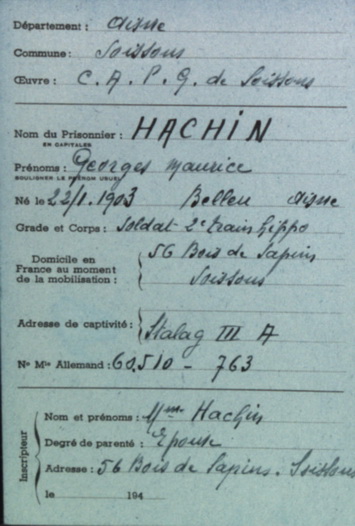 Département : Aisne
Commune : Soissons
Œuvre : C. A. P. G. de Soissons
Nom du Prisonnier : HACHIN
EN CAPITALES
Prénoms : Georges Maurice
SOULIGNER LE PRÉNOM USUEL
Né le 22/1.1903 Belleu Aisne
Grade et Corps : Soldat 2e train hippo
Domicile en France au moment de la mobilisation : 56 Bois de Sapins
Soissons
Adresse de captivité : Stalag III A
No Mle Allemand : 60.510 - 763
Inscripteur
Nom et prénoms : Mme Hachin
Degré de parenté : Epouse
Adresse : 56 Bois de Sapins. Soissons
le 194